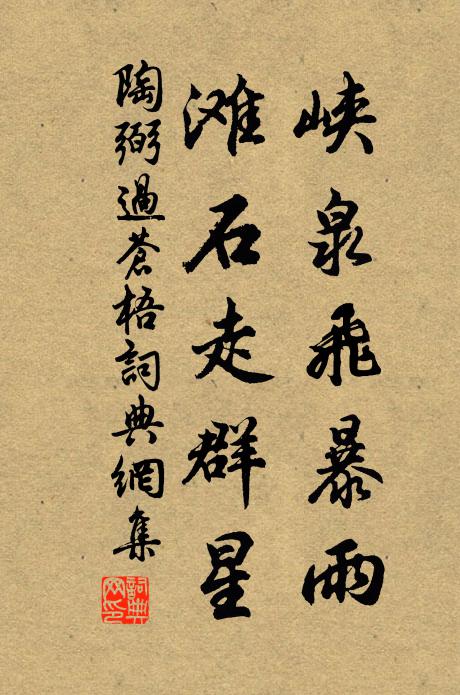 峡泉飛暴雨
滩石走群星
陶弼過蒼梧詞典網集
詞典网印